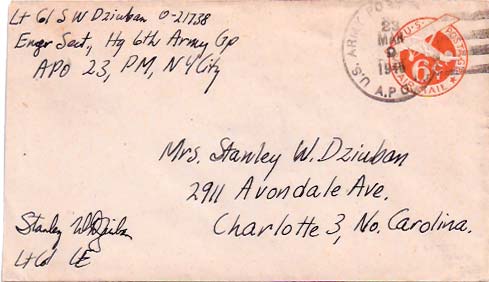 Lt Col S W Dziuban O-21738
Engr Sect, Hq 6th Army Gp
APO 23, PM, N Y City
U.S. ARMY POSTAL
23
MAR
9
A.P.O.
U.S. POSTAGE
6¢
AIR MAIL
Mrs. Stanley W. Dziuban
2911 Avondale Ave.
Charlotte 3, No. Carolina.
Stanley W Dziuban
Lt Col CE